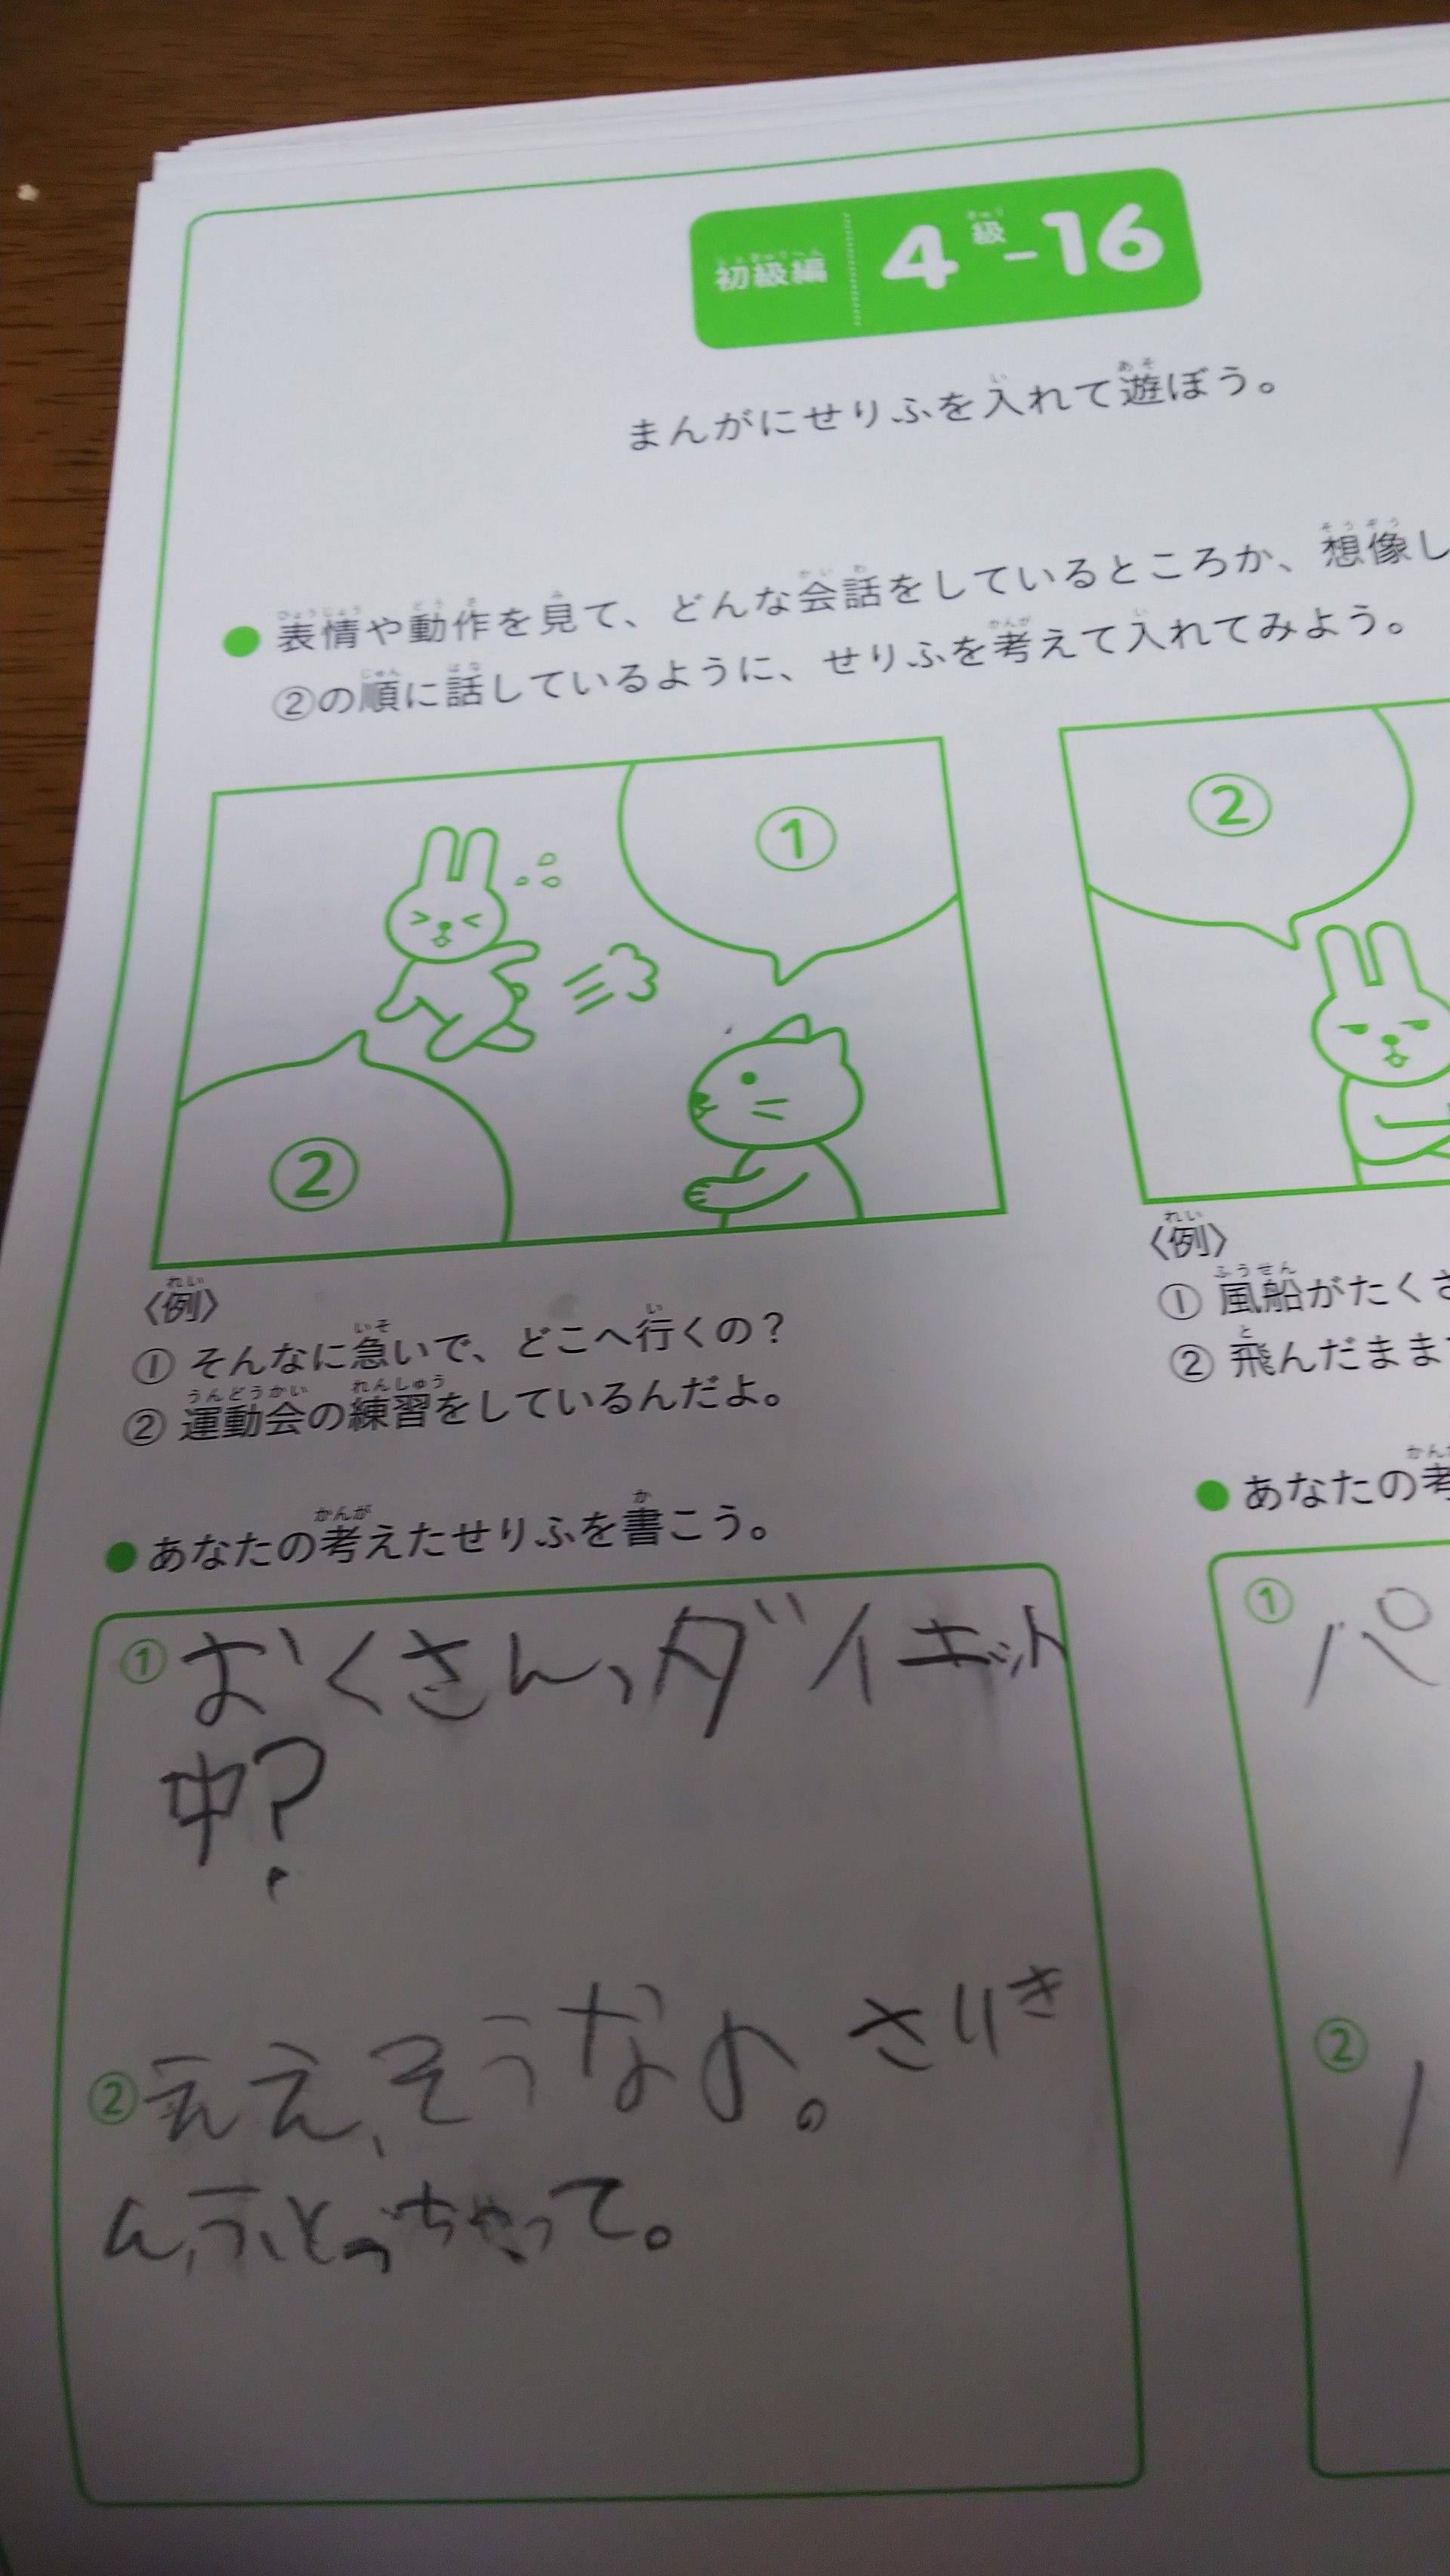 初級編 4級-16
まんがにせりふを入れて遊ぼう。
● 表情や動作を見て、どんな会話をしているところか、想像し
②の順に話しているように、せりふを考えて入れてみよう。
①
②
〈例〉
① そんなに急いで、どこへ行くの？
② 運動会の練習をしているんだよ。
● あなたの考えたせりふを書こう。
① おくさん、ダイエット
中？
② ええ、そうなの。さいき
ん、ふとっちゃって。
②
〈例〉
① 風船がたくさ
② 飛んだまま
● あなたの考
① パ
②